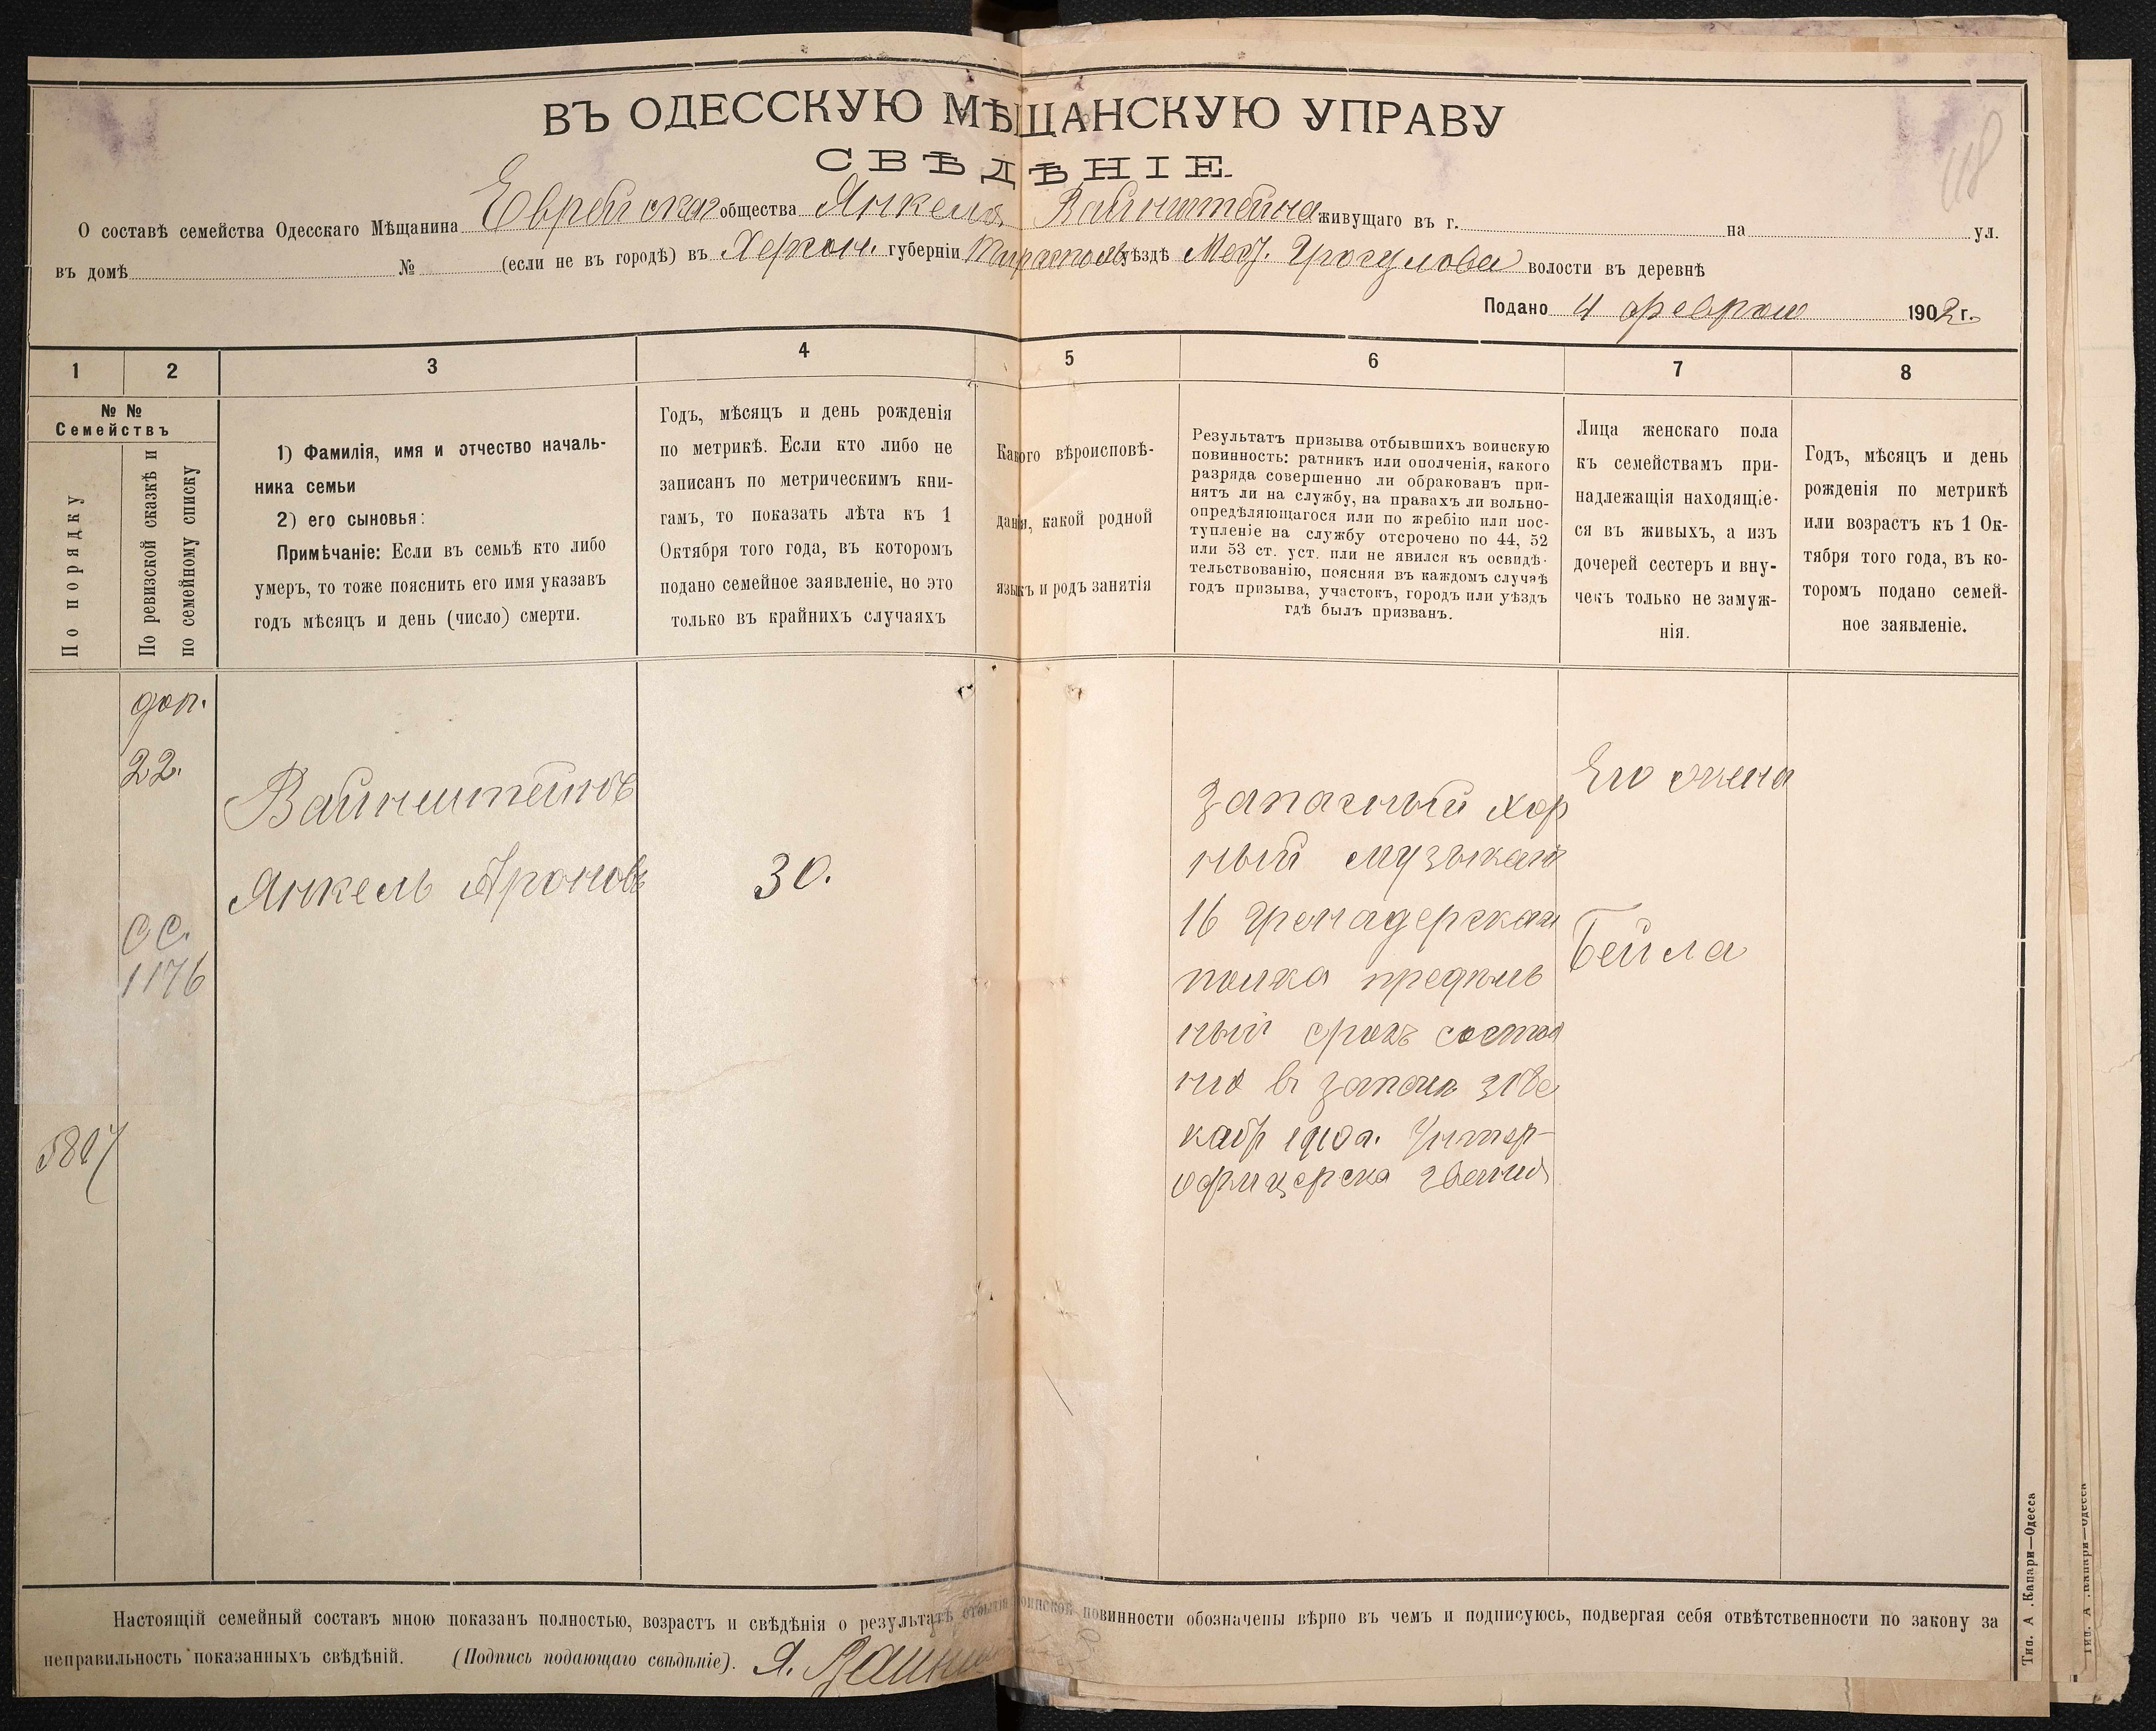 ВЪ ОДЕССКУЮ МѢЩАНСКУЮ УПРАВУ
СВѢДѢНІЕ.
118
О составѣ семейства Одесскаго Мѣщанина Еврейскаго общества Янкеля Вайнштейна живущаго въ г. на ул.
въ домѣ № (если не въ городѣ) въ Херсон. губерніи Тирасполь уѣздѣ Мест. Гросулова волости въ деревнѣ
Подано 4 феврал 1902 г.
1 2 3 4 5 6 7 8
№ №
Семействъ
По порядку
По ревизской сказкѣ и
по семейному списку
1) Фамилія, имя и отчество началь-
ника семьи
2) его сыновья:
Примѣчаніе: Если въ семьѣ кто либо
умеръ, то тоже пояснить его имя указавъ
годъ мѣсяцъ и день (число) смерти.
Годъ, мѣсяцъ и день рожденія
по метрикѣ. Если кто либо не
записанъ по метрическимъ кни-
гамъ, то показать лѣта къ 1
Октября того года, въ которомъ
подано семейное заявленіе, но это
только въ крайнихъ случаяхъ
Какого вѣроисповѣ-
данія, какой родной
языкъ и родъ занятія
Результатъ призыва отбывшихъ воинскую
повинность: ратникъ или ополченія, какого
разряда совершенно ли обракованъ при-
нятъ ли на службу, на правахъ ли вольно-
опредѣляющагося или по жребію или пос-
тупленіе на службу отсрочено по 44, 52
или 53 ст. уст. или не явился къ освидѣ-
тельствованію, поясняя въ каждомъ случаѣ
годъ призыва, участокъ, городъ или уѣздъ
гдѣ былъ призванъ.
Лица женскаго пола
къ семействамъ при-
надлежащія находящіе-
ся въ живыхъ, а изъ
дочерей сестеръ и вну-
чекъ только не замуж-
нія.
Годъ, мѣсяцъ и день
рожденія по метрикѣ
или возрастъ къ 1 Ок-
тября того года, въ ко-
торомъ подано семей-
ное заявленіе.
доп.
22.
СС.
1176
5817
Вайнштейнъ
Янкель Ароновъ
30.
Запасный хор
ный музыкант
16 Гренадерскаг
полка предѣль
ный срокъ состоя
нія въ запасѣ 31 де
кабр 1910 г. Унтер-
офицерска званія
Его жена
Бейла
Настоящій семейный составъ мною показанъ полностью, возрастъ и свѣдѣнія о результатѣ отбытія воинской повинности обозначены вѣрно въ чемъ и подписуюсь, подвергая себя отвѣтственности по закону за
неправильность показанныхъ свѣдѣній. (Подпись подающаго свѣдѣніе). Я. Вайнш
Тип. А. Капари—Одесса
Тип. А. Капари—Одесса